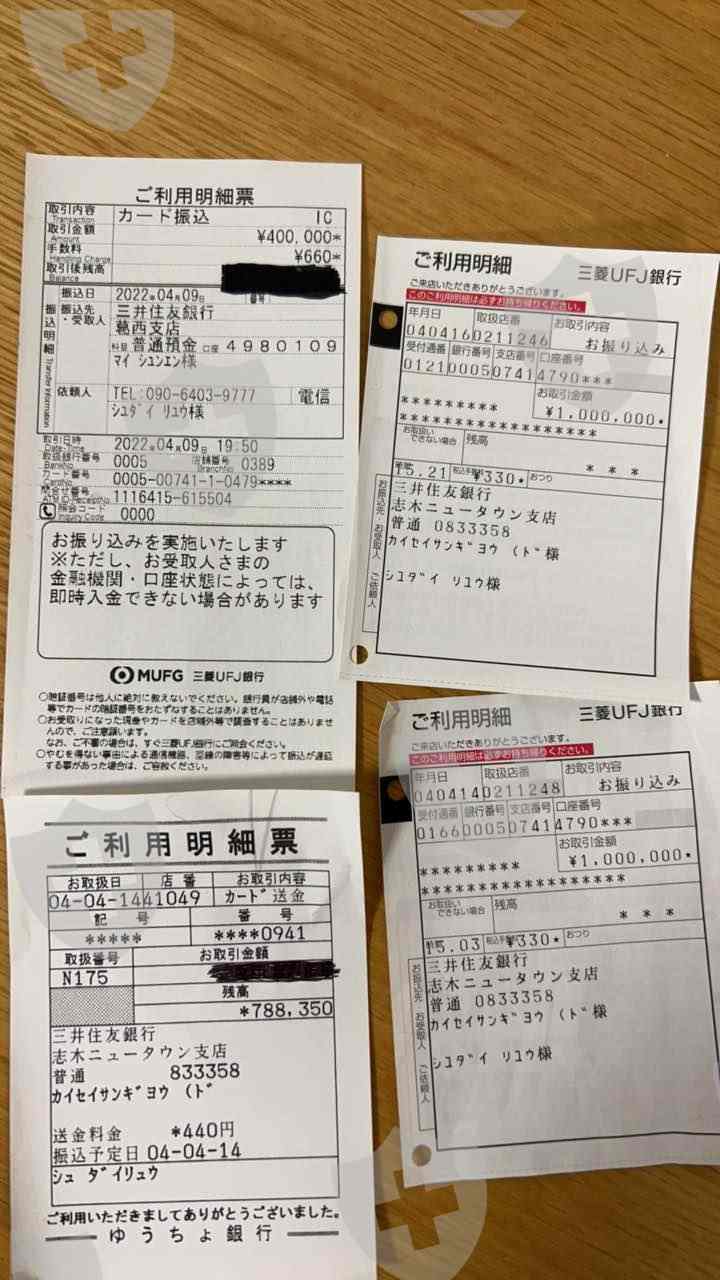 ご利用明細票
取引内容 Transaction カード振込 IC
取引金額 Amount ¥400,000*
手数料 Handling Charge ¥660*
取引後残高 Balance
振込明細 Transfer Information
振込日 2022年04月09日 番号
振込先・受取人 三井住友銀行
葛西支店
科目 普通預金 口座 4980109
マイ シユンエン様
依頼人 TEL:090-6403-9777 電信
シユダイ リユウ様
取引日時 Date-Time 2022年04月09日 19:50
取扱銀行番号 BankNo 0005 店舗番号 BranchNo 0389
カード番号 CardNo 0005-00741-1-0479****
問合せ番号 ATM ID-ReceiptNo 1116415-615504
照会コード Inquiry Code 0000
お振り込みを実施いたします
※ただし、お受取人さまの
金融機関・口座状態によっては、
即時入金できない場合があります
MUFG 三菱UFJ銀行
○暗証番号は他人に絶対に教えないでください。銀行員が店舗外や電話
等でカードの暗証番号をおたずねすることはありません。
○お受取りになった現金やカードを店舗外等で調査することはありませ
んので、ご注意願います。
なお、ご不審の場合は、すぐ三菱UFJ銀行にご照会ください。
○やむを得ない事由による通信機器、回線の障害等によって振込が遅延
する事があった場合は、ご容赦ください。
ご利用明細 三菱UFJ銀行
ご来店いただきありがとうございます。
このご利用明細は必ずお持ち帰りください。
年月日 取扱店番 お取引内容
040416 0211246 お振り込み
受付通番 銀行番号 支店番号 口座番号
0121 0005 0741 4790***
お取引金額
********* ¥1,000,000*
******************
お取扱いできない場合 残高
* * *
時刻 15.21 税込手数料 ¥330* おつり
お振込先・お受取人 ご依頼人
三井住友銀行
志木ニュータウン支店
普通 0833358
カイセイサンギヨウ (ド 様
シユダイ リユウ様
ご利用明細 三菱UFJ銀行
ご来店いただきありがとうございます。
このご利用明細は必ずお持ち帰りください。
年月日 取扱店番 お取引内容
040414 0211248 お振り込み
受付通番 銀行番号 支店番号 口座番号
0166 0005 0741 4790***
お取引金額
********* ¥1,000,000*
******************
お取扱いできない場合 残高
* * *
時刻 15.03 税込手数料 ¥330* おつり
お振込先 お受取人 ご依頼人
三井住友銀行
志木ニュータウン支店
普通 0833358
カイセイサンギヨウ (ド 様
シユダイ リユウ様
ご利用明細票
お取扱日 店番 お取引内容
04-04-14 41049 カード送金
記号 番号
***** ****0941
取扱番号 お取引金額
N175
残高
*788,350
三井住友銀行
志木ニュータウン支店
普通 833358
カイセイサンギヨウ (ド
送金料金 *440円
振込予定日 04-04-14
シユ ダイリユウ
ご利用いただきましてありがとうございました。
ゆうちょ銀行